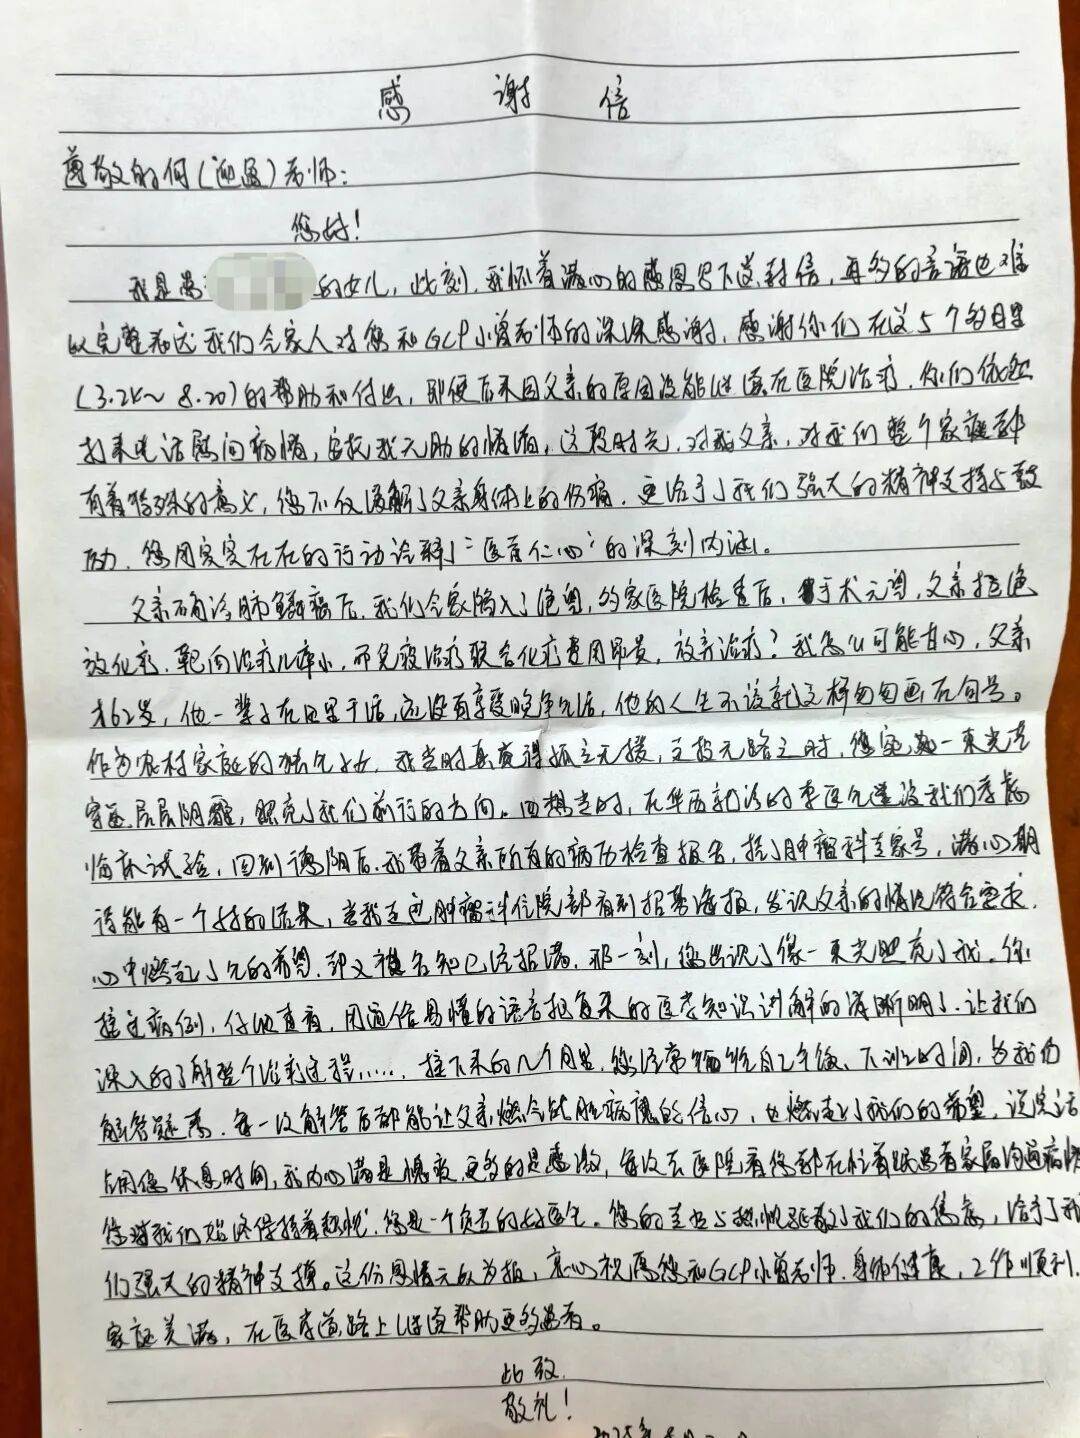 感谢信
尊敬的何(迎盈)老师:
您好!
我是患 的女儿,此刻,我怀着满心的感恩写下这封信,再多的言语也难
以完整表达我们全家人对您和GCP小曾老师的深深感谢,感谢你们在这5个多月里
(3.24~8.20)的帮助和付出,即便后来因父亲的原因没能继续在医院治疗,你们依然
打来电话慰问病情,安抚我无助的情绪,这段时光,对我父亲,对我们整个家庭都
有着特殊的意义,您不仅缓解了父亲身体上的伤痛,更给予了我们强大的精神支持与鼓
励,您用实实在在的行动诠释了“医者仁心”的深刻内涵。
父亲确诊肺鳞癌后,我们全家陷入了绝望,多家医院检查后,手术无望,父亲拒绝
放化疗,靶向治疗几率小,而免疫治疗联合化疗费用昂贵,放弃治疗?我怎么可能甘心,父亲
才62岁,他一辈子在田里干活,还没有享受晚年生活,他的人生不该就这样匆匆画在句号。
作为农村家庭的独生女,我当时真觉得孤立无援,走投无路之时,您宛如一束光穿
透层层阴霾,照亮了我们前行的方向。回想当时,在华西就诊的李医生建议我们考虑
临床试验,回到德阳后,我带着父亲所有的病历检查报告,挂了肿瘤科专家号,满心期
待能有一个好的结果,当我在 肿瘤科住院部看到招募海报,发现父亲的情况符合要求,
心中燃起了生的希望,却又被告知已经招满,那一刻,您出现了像一束光照亮了我,你
接过病例,仔细查看,用通俗易懂的语言把复杂的医学知识讲解的清晰明了,让我们
深入的了解整个治疗过程……,接下来的几个月里,您经常牺牲自己午饭、下班时间,为我们
解答疑惑,每一次解答后都能让父亲燃念战胜病魔的信心,也燃起了我们的希望,说实话
占用您休息时间,我内心满是愧疚,更多的是感激,每次去医院看您都在忙着跟患者家属沟通病情
您对我们始终保持着热忱,您是一个负责的好医生。您的专业与热忱驱散了我们的焦虑,给予了我
们强大的精神支撑。这份恩情无以为报,衷心祝愿您和GCP小曾老师,身体健康,工作顺利,
家庭美满,在医疗道路上继续帮助更多患者。
此致
敬礼!
2025年